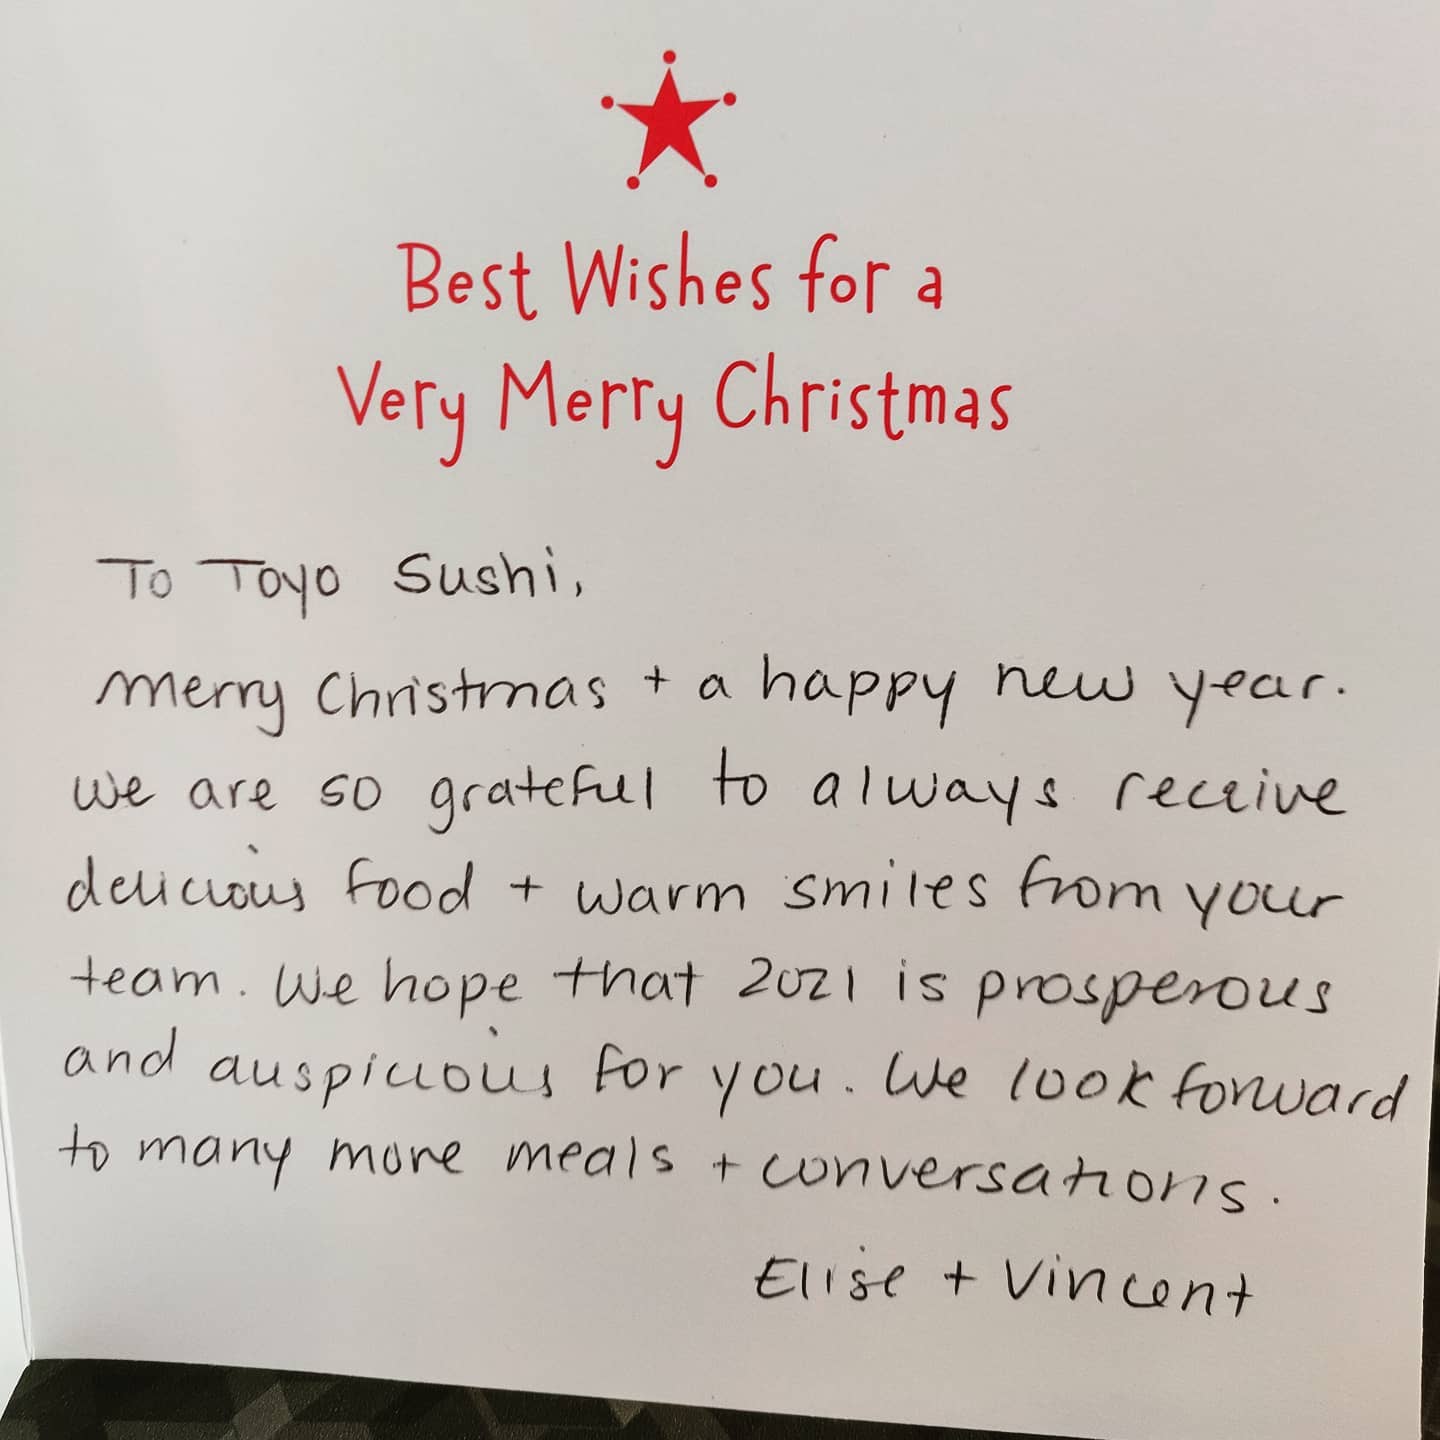 Best Wishes for a
Very Merry Christmas
To Toyo Sushi,
Merry Christmas + a happy new year.
We are so grateful to always receive
delicious food + warm smiles from your
team. We hope that 2021 is prosperous
and auspicious for you. We look forward
to many more meals + conversations.
Elise + Vincent